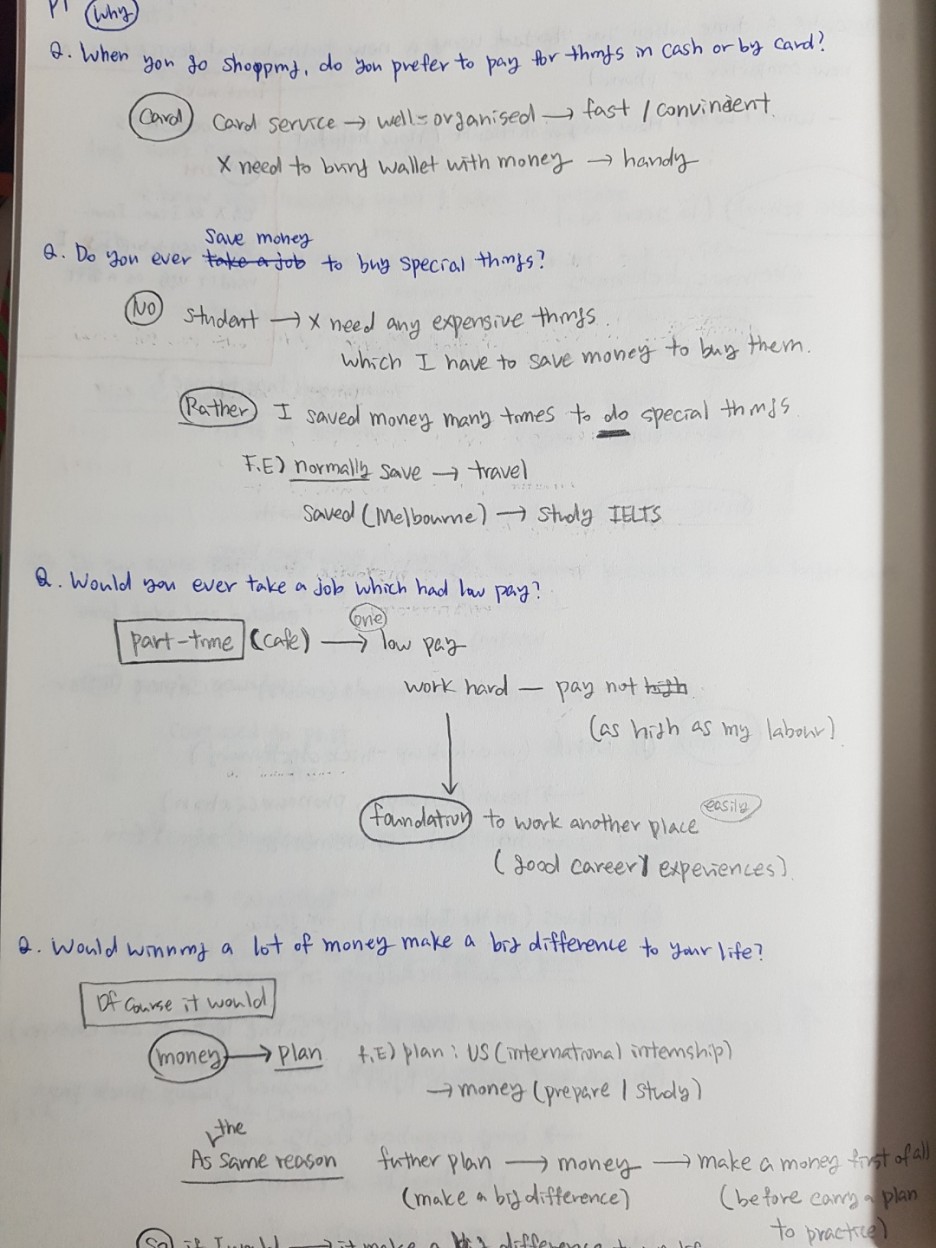 P1 Why
Q. When you go shopping, do you prefer to pay for things in cash or by card?
Card Card service → well-organised → fast / convinient.
X need to bring wallet with money → handy
Save money
Q. Do you ever take a job to buy special things?
No student → X need any expensive things.
which I have to save money to buy them.
Rather I saved money many times to do special things
F.E) normally save → travel
saved (Melbourne) → study IELTS
Q. Would you ever take a job which had low pay?
one
part-time (cafe) → low pay
work hard — pay not high
(as high as my labour)
easily
foundation to work another place
(good career experiences).
Q. Would winning a lot of money make a big difference to your life?
Of course it would
money → plan f.E) plan : US (international internship)
→ money (prepare / study)
the
As same reason futher plan → money → make a money first of all
(make a big difference) (before carry a plan
to practice)
So if I